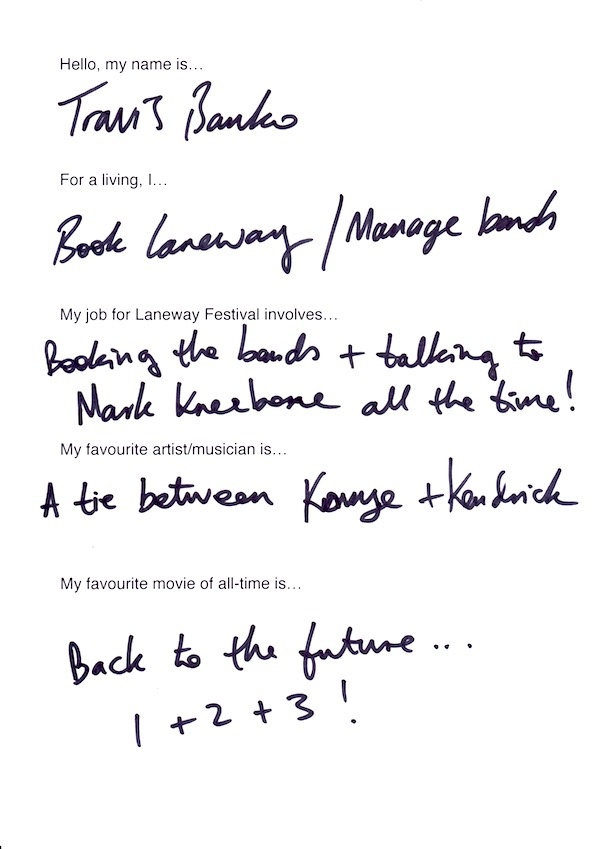 Hello, my name is...
Travis Banko
For a living, I...
Book Laneway / Manage bands
My job for Laneway Festival involves...
Booking the bands + talking to
Mark Kneebone all the time!
My favourite artist/musician is...
A tie between + Kendrick
My favourite movie of all-time is...
Back to the future...
1 + 2 + 3 !